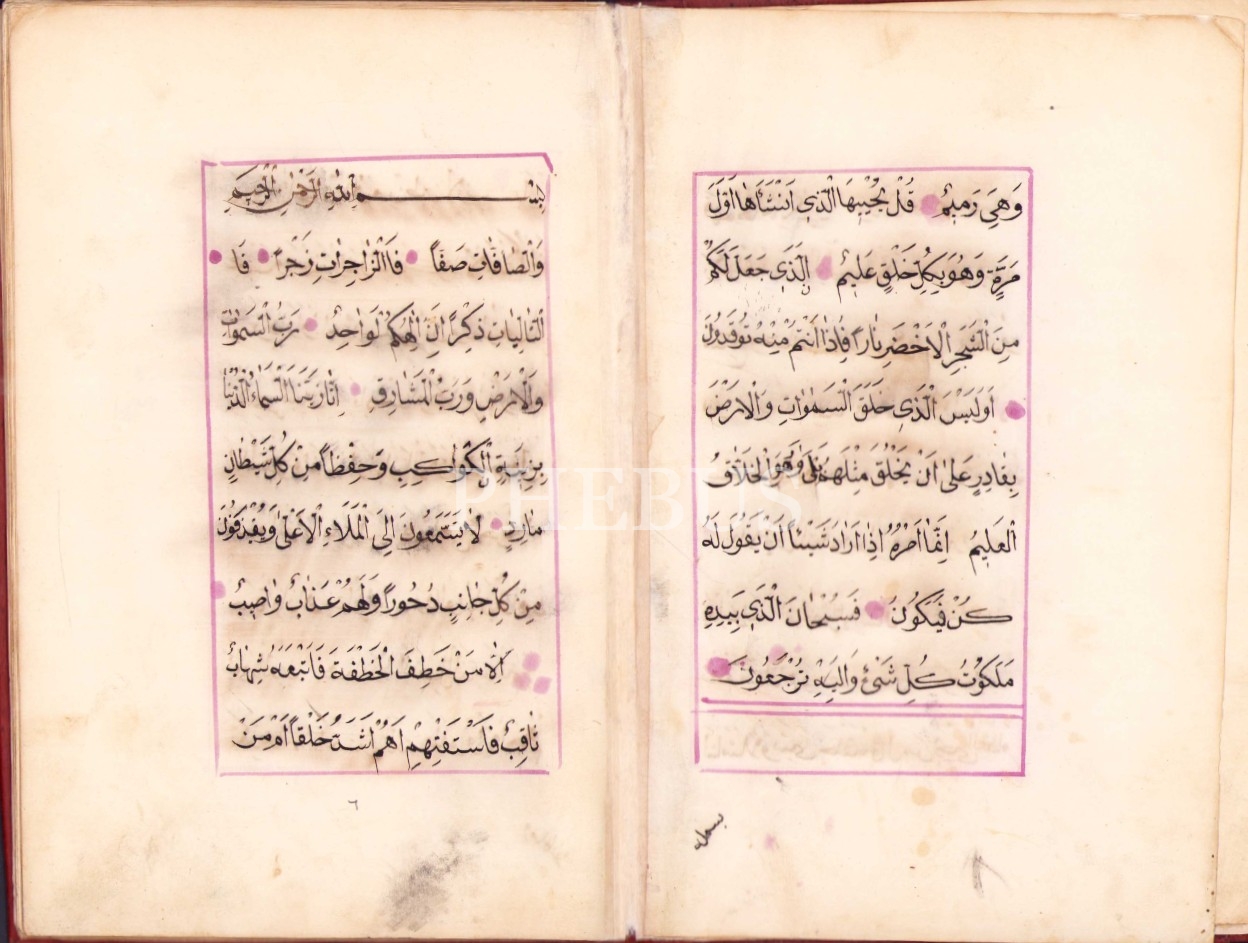 وَهِيَ رَمِيمٌ قُلْ يُحْيِيهَا الَّذِي أَنْشَأَهَا أَوَّلَ
مَرَّةٍ وَهُوَ بِكُلِّ خَلْقٍ عَلِيمٌ الَّذِي جَعَلَ لَكُمْ
مِنَ الشَّجَرِ الْأَخْضَرِ نَاراً فَإِذَا أَنْتُمْ مِنْهُ تُوقِدُونَ
أَوَلَيْسَ الَّذِي خَلَقَ السَّمٰوَاتِ وَالْأَرْضَ
بِقَادِرٍ عَلىٰ أَنْ يَخْلُقَ مِثْلَهُمْ بَلىٰ وَهُوَ الْخَلَّاقُ
الْعَلِيمُ إِنَّمَا أَمْرُهُ إِذَا أَرَادَ شَيْئاً أَنْ يَقُولَ لَهُ
كُنْ فَيَكُونُ فَسُبْحَانَ الَّذِي بِيَدِهِ
مَلَكُوتُ كُلِّ شَيْءٍ وَإِلَيْهِ تُرْجَعُونَ
بِسْمِ اللهِ الرَّحْمٰنِ الرَّحِيمِ
وَالصَّافَّاتِ صَفّاً فَالزَّاجِرَاتِ زَجْراً فَا
لتَّالِيَاتِ ذِكْراً إِنَّ إِلٰهَكُمْ لَوَاحِدٌ رَبُّ السَّمٰوَاتِ
وَالْأَرْضِ وَرَبُّ الْمَشَارِقِ إِنَّا زَيَّنَّا السَّمَاءَ الدُّنْيَا
بِزِينَةٍ الْكَوَاكِبِ وَحِفْظاً مِنْ كُلِّ شَيْطَانٍ
مَارِدٍ لَا يَسَّمَّعُونَ إِلَى الْمَلَاءِ الْأَعْلىٰ وَيُقْذَفُونَ
مِنْ كُلِّ جَانِبٍ دُحُوراً وَلَهُمْ عَذَابٌ وَاصِبٌ
إِلَّا مَنْ خَطِفَ الْخَطْفَةَ فَأَتْبَعَهُ شِهَابٌ
ثَاقِبٌ فَاسْتَفْتِهِمْ أَهُمْ أَشَدُّ خَلْقاً أَمْ مَنْ
٦
PHEBUS